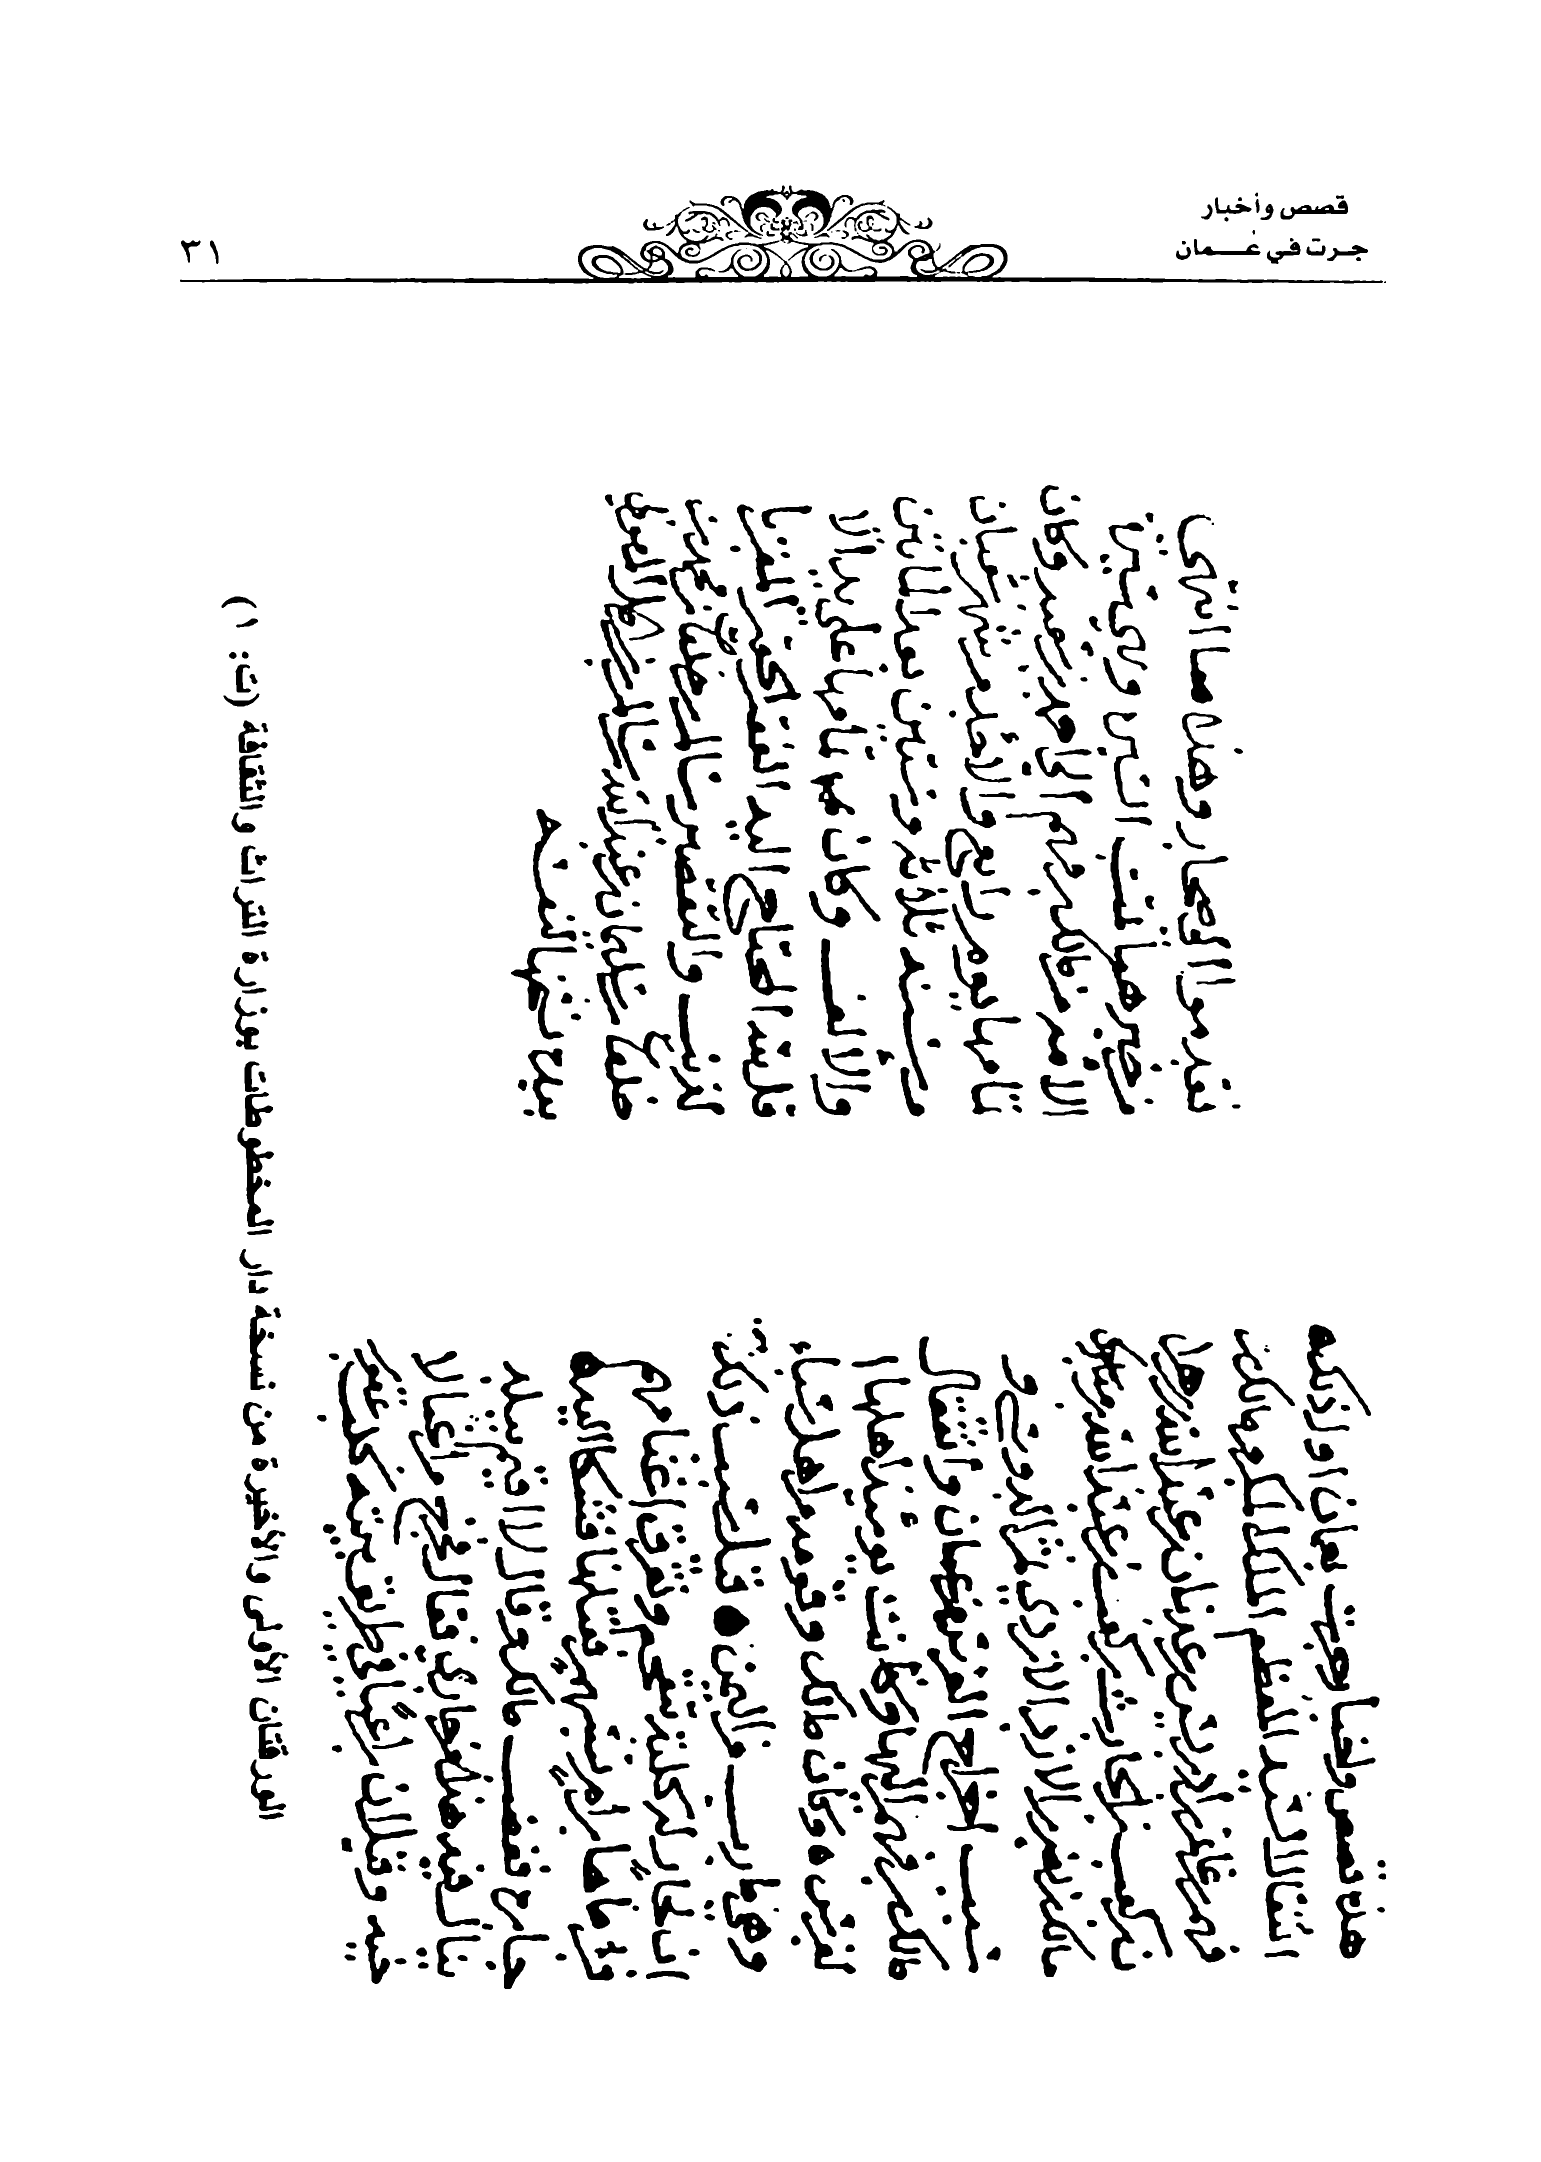 قصص وأخبار
جرت في عُـمان
٣١
هذه قصص واخبار جرت بعمان اولذلكه
انتقال السيد المعظم الملك المكرم مالك بن
فهم بن غانم بن دوس بن عدنان بن عبد الله بن زهران
بن كعب بن الحارث بن كعب بن عبد الله بن مالك
مالك بن نصر بن الازد الازدي ثم الدوسي و
سبب اخراج الفرس من عمان وانتقال
مالك بن فهم اليها وكانت يومئذ اهلها
الفرس ه وكان مالك وقومه من اهل سباء
وهي مارب من اليمن قيل سبب ذلك
ان جار له كلبة وتفرق اغنامهم
فرماها بسهم فقتلها فشكا اليه
جاره فغضب مالك وقال لا اقيم ببلد
ينال فيه هذا بجاري فقال فخرج مراغما لا
خيه وقيل ان راعيا في طريق بيته كلب عقور
تقدموا الى صحار وهذه ما انتهى
من خبرهما ثبت الذي
الامة من مالك بن فهم الى احمد بن سعيد وكان
تمامها يوم رابع والاحد من شهر شعبان
من سنة ثلاثة وستين بعد المائتين
والالف وكان تمامها على يد الا
فلس المحتاج اليه الفقير الحقير المقر با
لذنب والتقصير سالم بن
خلفان سليمان بن عبد الله بن سالم بن
بيده لشيخها الثقة
الورقتان الأولى والأخيرة من نسخة دار المخطوطات بوزارة التراث والثقافة (ت: ١)